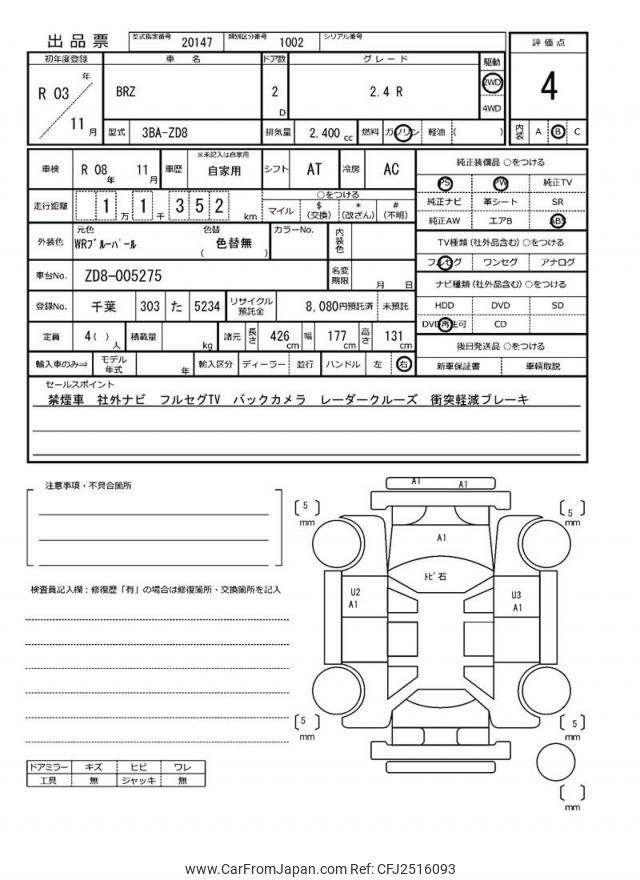 出品票
型式指定番号 20147 類別区分番号 1002 シリアル番号
評価点
4
内装 A B C
初年度登録 車名 ドア数 グレード 駆動
R 03 年 11 月 BRZ 2 D 2.4 R 2WD 4WD
型式 3BA-ZD8 排気量 2,400 cc 燃料 ガソリン 軽油 ( )
車検 R 08 年 11 月 車歴 ※未記入は自家用 自家用 シフト AT 冷房 AC
走行距離 1 万 1 千 3 5 2 km
○をつける
マイル $ (交換) * (改ざん) # (不明)
外装色 元色 WRブルーパール 色替 ( 色替無 ) カラーNo. 内装色
車台No. ZD8-005275 名変期限 月 日
登録No. 千葉 303 た 5234 リサイクル預託金 8,080円預託済 未預託
定員 4( ) 人 積載量 kg 諸元 長さ 426 cm 幅 177 cm 高さ 131 cm
輸入車のみ⇒ モデル年式 年 輸入区分 ディーラー 並行 ハンドル 左 右
純正装備品 ○をつける
PS PW 純正TV
純正ナビ 革シート SR
純正AW エアB ABS
TV種類 (社外品含む) ○をつける
フルセグ ワンセグ アナログ
ナビ種類 (社外品含む) ○をつける
HDD DVD SD
DVD再生可 CD
後日発送品 ○をつける
新車保証書 車輌取説
セールスポイント
禁煙車 社外ナビ フルセグTV バックカメラ レーダークルーズ 衝突軽減ブレーキ
注意事項・不具合箇所
検査員記入欄：修復歴「有」の場合は修復箇所・交換箇所を記入
A1 A1
5 mm
5 mm
A1
トビ石
U2 A1
U3 A1
5 mm
5 mm
mm
ドアミラー キズ ヒビ ワレ
工具 無 ジャッキ 無
www.CarFromJapan.com Ref: CFJ2516093